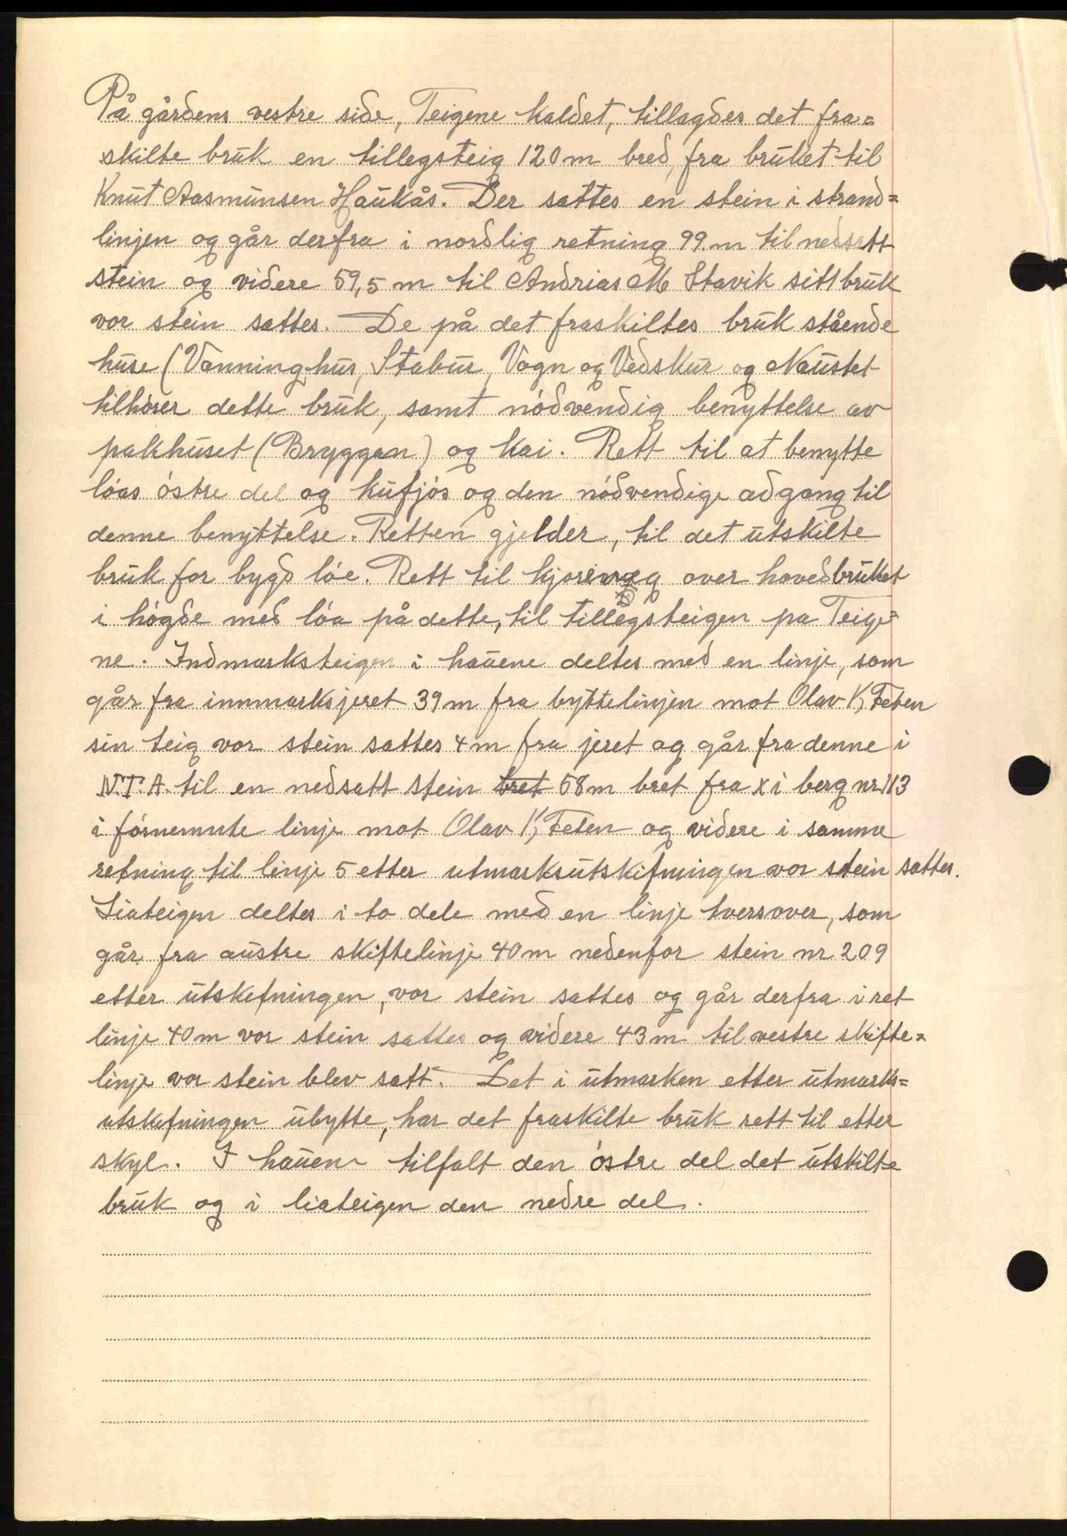 På gårdens vestre side, Teigene kaldet, tillagdes det fra=
skilte bruk en tillegsteig 120 m bred, fra bruket til
Knut Aasmunsen Haukås. Der sattes en stein i strand=
linjen og går derfra i nordlig retning 99 m til nedsatt
stein og videre 59,5 m til Andrias M Stavik sitt bruk
vor stein sattes. De på det fraskiltes bruk stående
huse (Vånninghus, Stabur, Vogn og Vedskur og Naustet
tilhører dette bruk, samt nødvendig benyttelse av
pakhuset (Bryggen) og kai. Rett til at benytte
løas østre del og kufjøs og den nødvendige adgang til
denne benyttelse. Retten gjelder, til det utskilte
bruk for bygd løe. Rett til kjøreveg over hovedbruket
i høgde med løa på dette, til tillegsteigen pa Teige=
ne. Indmarksteigen i hauene deltes med en linje, som
går fra innmarksjeret 39 m fra byttelinjen mot Olav K, Feten
sin teig vor stein sattes 4 m fra jeret og går fra denne i
N.T.A. til en nedsatt stein bret 58 m bret fra x i berg nr 113
i førnemnte linje mot Olav K, Feten og videre i samme
retning til linje 5 etter utmarksutskifningen vor stein sattes.
Liateigen deltes i to dele med en linje tversover, som
går fra austre skiftelinje 40 m nedenfor stein nr 209
etter utskefningen, vor stein sattes og går derfra i ret
linje 40 m vor stein sattes og videre 43 m til vestre skifte=
linje vor stein blev satt. Det i utmarken etter utmarks=
utskefningen ubytte, har det fraskilte bruk rett til etter
skyl. I hauene tilfalt den østre del det utskilte
bruk og i liateigen den nedre del.